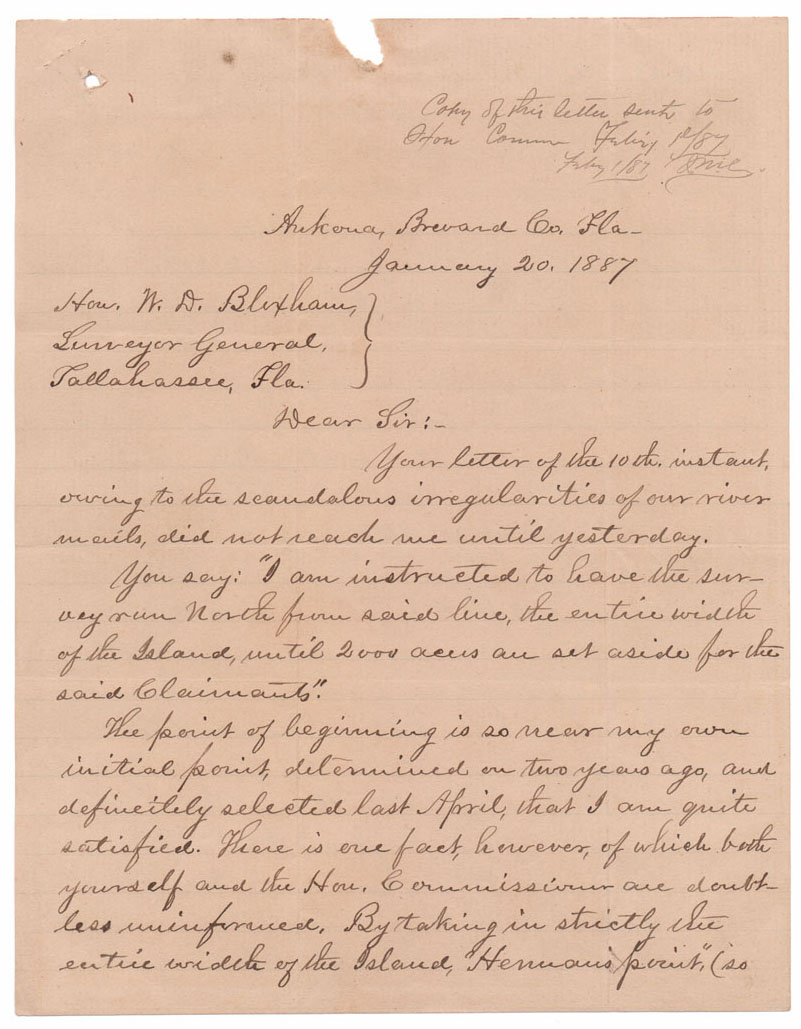 Copy of this letter sent to
Hon Comm Feb'y 1st/87
Feby 1/87
Ankona, Brevard Co. Fla-
January 20. 1887
Hon. W. D. Bloxham,
Surveyor General,
Tallahassee, Fla.
Dear Sir:-
Your letter of the 10th. instant,
owing to the scandalous irregularities of our river
mails, did not reach me until yesterday.
You say: "I am instructed to have the sur-
vey run North from said line, the entire width
of the Island, until 2000 acres are set aside for the
said Claimants".
The point of beginning is so near my own
initial point, determined on two years ago, and
definitely selected last April, that I am quite
satisfied. There is one fact, however, of which both
yourself and the Hon. Commissioner are doubt-
less uninformed. By taking in strictly the
entire width of the Island, "Herman's point", (so